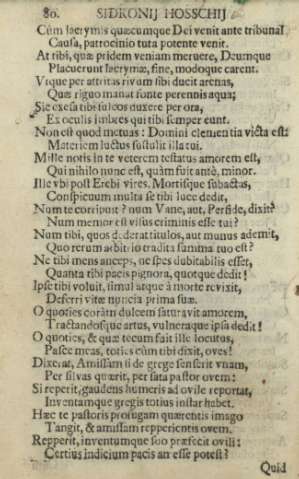 80. SIDRONIJ HOSSCHIJ
Cùm lacrymis quæcumque Dei venit ante tribunal
Causa, patrocinio tuta potente venit.
At tibi, quæ pridem veniam meruere, Deumque
Placuerunt lacrymæ, fine, modoque carent.
Vtque per attritas rivum sibi ducit arenas,
Quæ riguo manat fonte perennis aqua;
Sic exesa tibi sulcos duxere per ora,
Ex oculis imbres qui tibi semper eunt.
Non est quod metuas: Domini clementia victa est:
Materiem luctus sustulit illa tui.
Mille notis in te veterem testatus amorem est,
Qui nihilo nunc est, quàm fuit antè, minor.
Ille vbi post Erebi vires, Mortisque subactas,
Conspicuum multa se tibi luce dedit,
Num te corripuit? num Vane, aut, Perfide, dixit?
Num memor est visus criminis esse tui?
Num tibi, quos dederat titulos, aut munus ademit,
Quo rerum arbitrio tradita summa tuo est?
Ne tibi mens anceps, ne spes dubitabilis esset,
Quanta tibi pacis pignora, quotque dedit!
Ipse tibi voluit, simul atque à morte revixit,
Deferri vitæ nuncia prima suæ.
O quoties coràm dulcem saturavit amorem,
Tractandosque artus, vulneraque ipsa dedit!
O quoties, & quæ tecum fait ille locutus,
Pasce meas, toties cùm tibi dixit, oves!
Dixerat, Amissam si de grege senserit vnam,
Per silvas quærit, per sata pastor ovem:
Si reperit, gaudens humeris ad ovile reportat,
Inventamque gregis totius instar habet.
Hæc te pastoris profugam quærentis imago
Tangit, & amissam repperientis ovem.
Repperit, inventumque suo præfecit ovili:
Certius indicium pacis an esse potest?
Quid